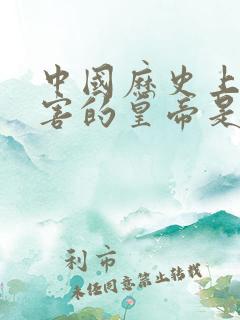 中國歷史上
害的皇帝是
利市
未经同意禁止转载